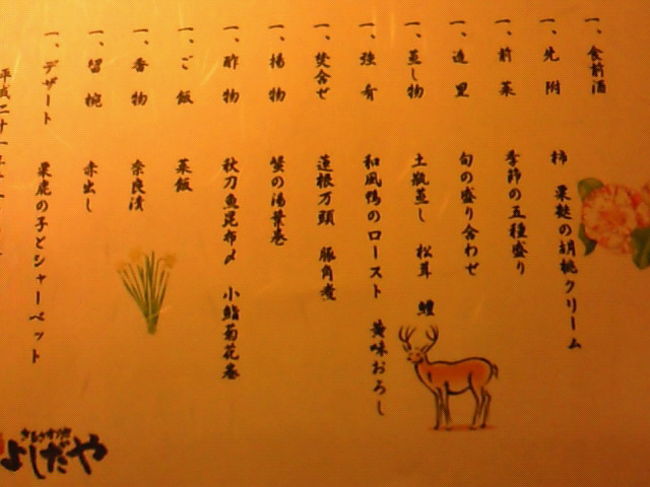 一、食前酒
一、先附 柿 栗麩の胡桃クリーム
一、前菜 季節の五種盛り
一、造里 旬の盛り合わせ
一、蒸し物 土瓶蒸し 松茸 鱧
一、強肴 和風鴨のロースト 黄味おろし
一、焚合せ 蓮根万頭 豚角煮
一、揚物 蟹の湯葉巻
一、酢物 秋刀魚昆布〆 小鮨菊花巻
一、ご飯 菜飯
一、香物 奈良漬
一、留椀 赤出し
一、デザート 栗鹿の子とシャーベット
平成二十一年
よしだや